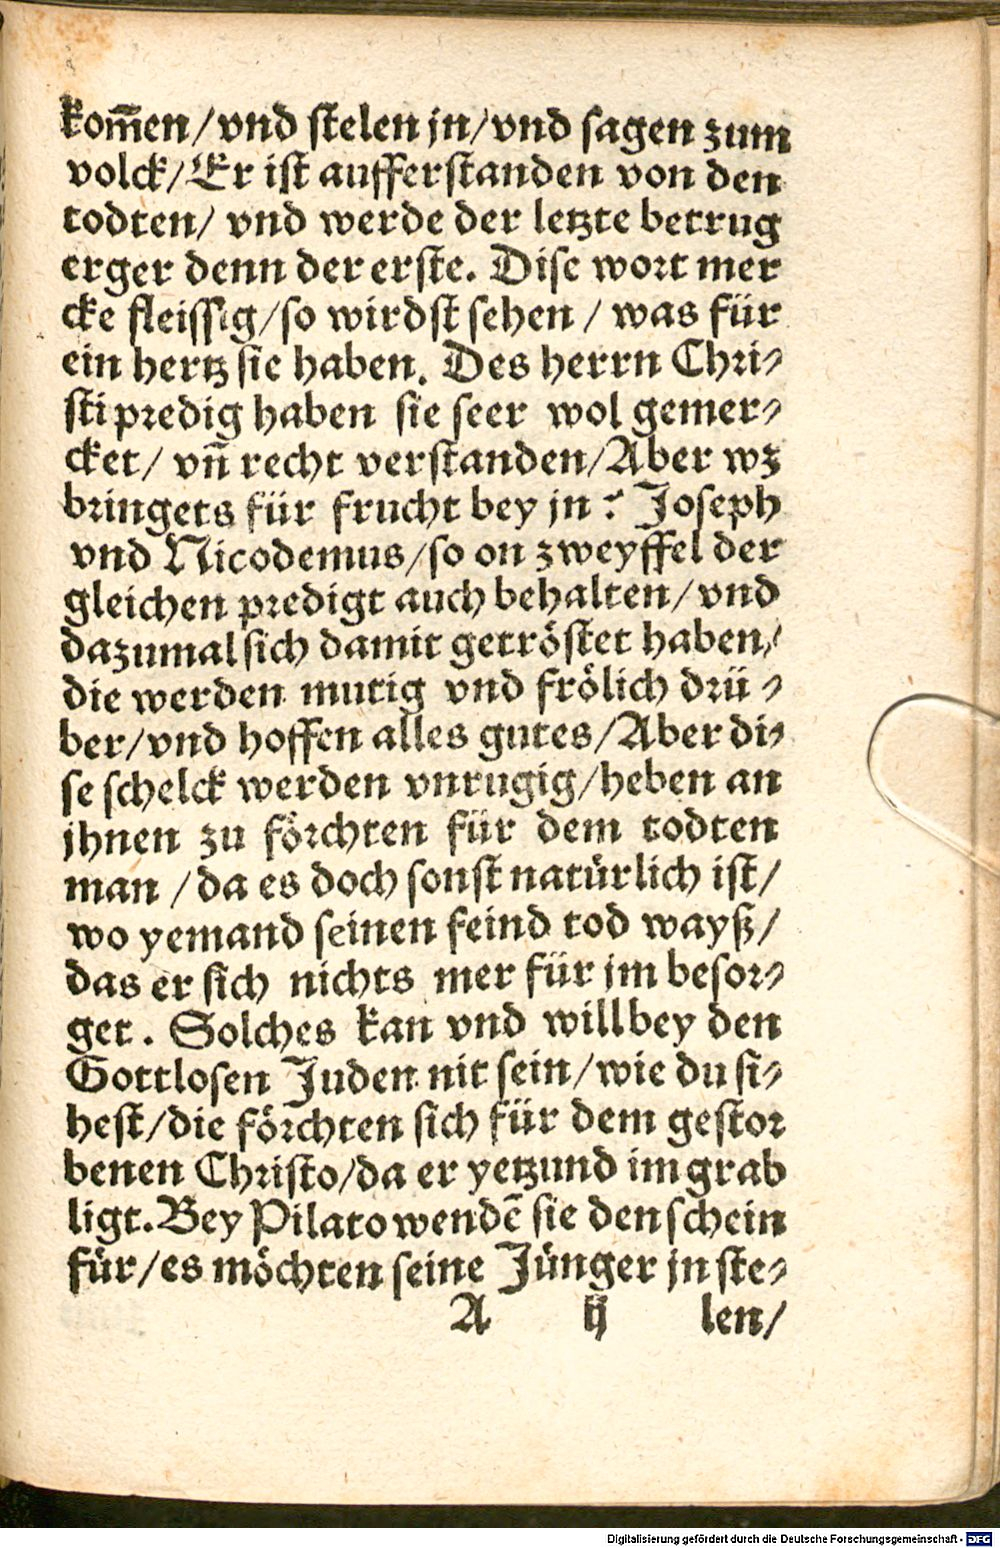 kom̄en/vnd stelen jn/vnd sagen zum
volck/Er ist aufferstanden von den
todten/ vnd werde der letzte betrug
erger denn der erste. Dise wort mer
cke fleissig/so wirdst sehen / was für
ein hertz sie haben. Des herrn Chri-
sti predig haben sie seer wol gemer-
cket/ vn̄ recht verstanden/Aber wz
bringets für frucht bey jn? Joseph
vnd Nicodemus/so on zweyffel der
gleichen predigt auch behalten/vnd
dazumal sich damit getröstet haben/
die werden mutig vnd frölich drü-
ber/vnd hoffen alles gutes/Aber di-
se schelck werden vnrugig/heben an
jhnen zu förchten für dem todten
man /da es doch sonst natürlich ist/
wo yemand seinen feind tod wayß/
das er sich nichts mer für jm besor-
get. Solches kan vnd will bey den
Gottlosen Juden nit sein/wie du si-
hest/die förchten sich für dem gestor
benen Christo/da er yetzund im grab
ligt. Bey Pilato wendē sie den schein
für/es möchten seine Jünger jn ste-
A ij len/
Digitalisierung gefördert durch die Deutsche Forschungsgemeinschaft - DFG